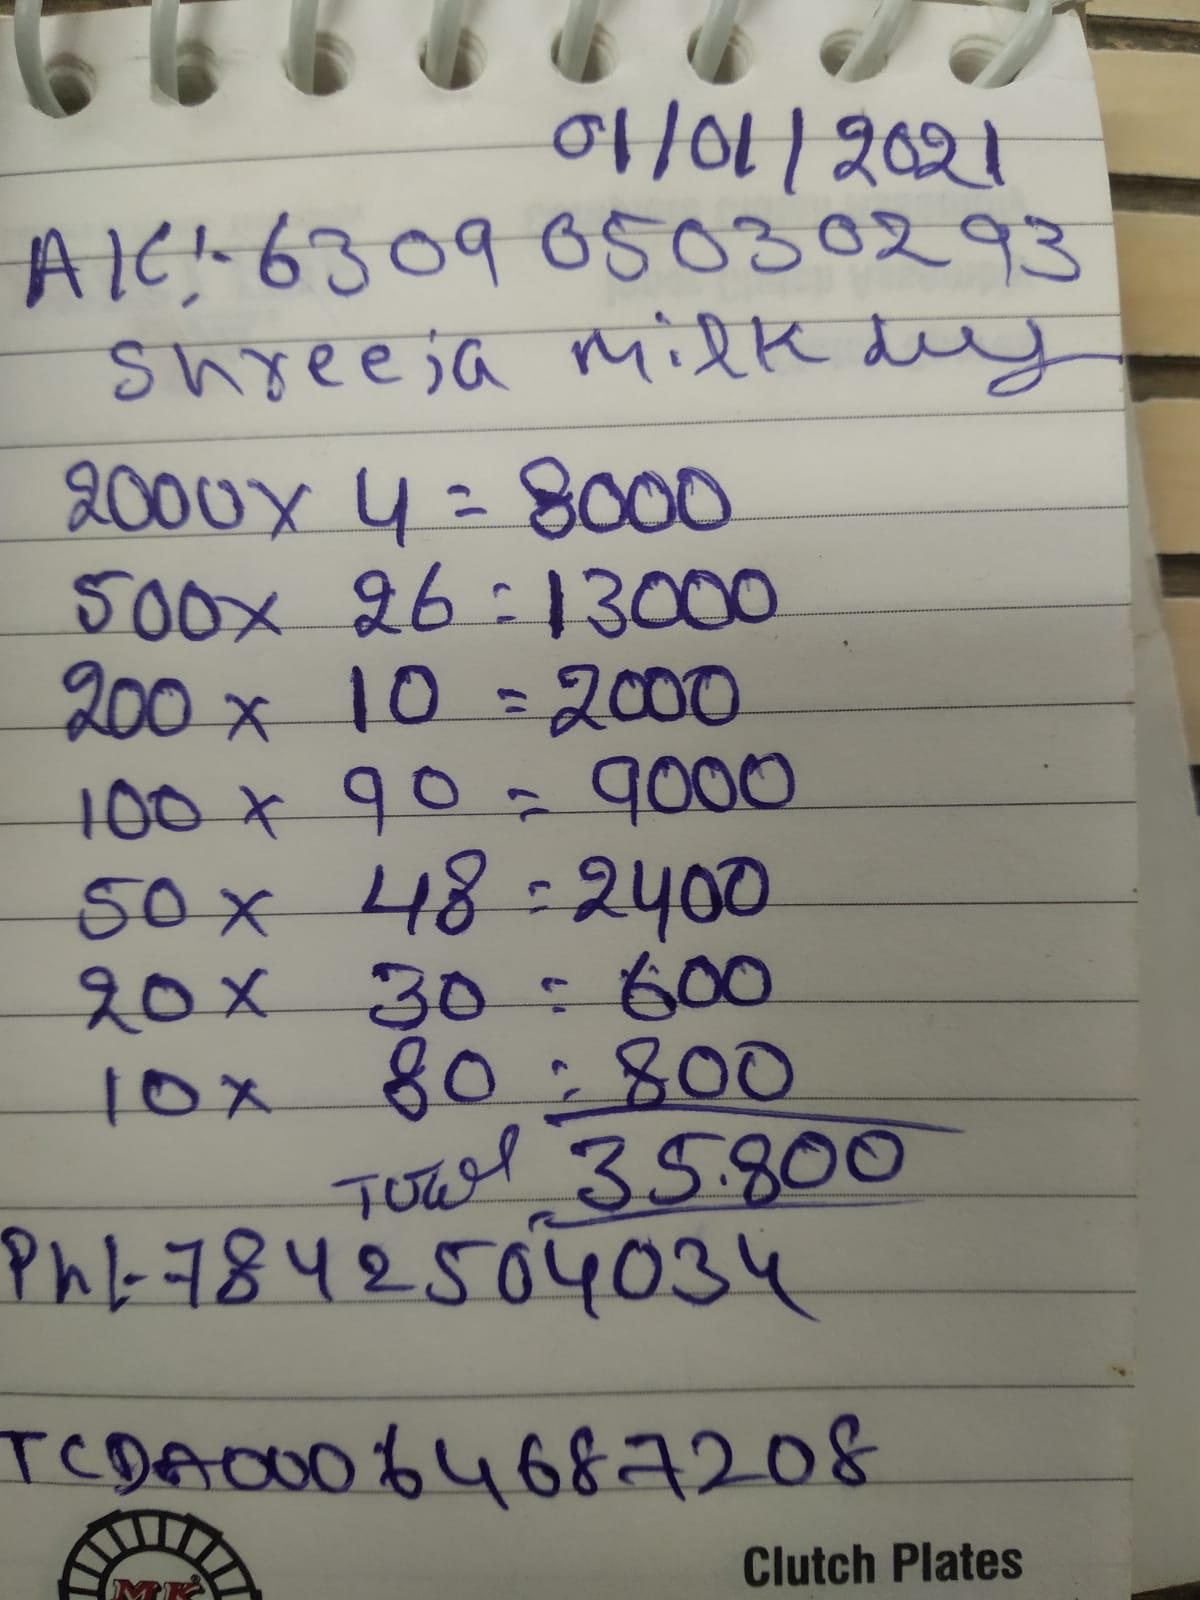 01/01/2021
A/C:- 630905030293
Shreeja milk
2000 x 4 = 8000
500 x 26 = 13000
200 x 10 = 2000
100 x 90 = 9000
50 x 48 = 2400
20 x 30 = 600
10 x 80 = 800
Total 35.800
Ph:- 7842504034
TCDA00064687208
MK
Clutch Plates